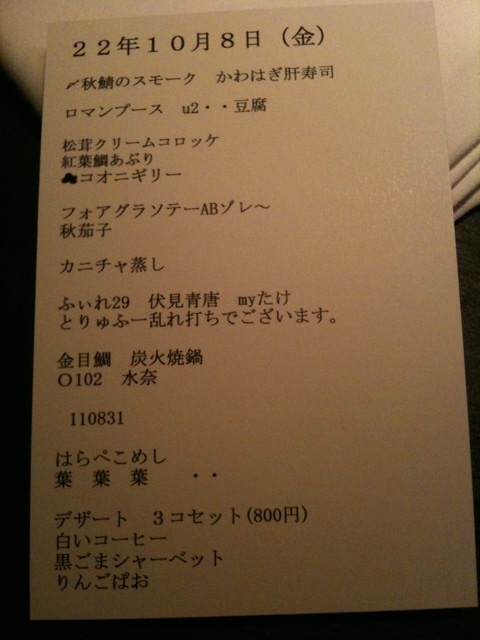 22年10月8日（金）
〆秋鯖のスモーク　かわはぎ肝寿司
ロマンプース　u2・・豆腐
松茸クリームコロッケ
紅葉鯛あぶり
コオニギリー
フォアグラソテーABゾレ～
秋茄子
カニチャ蒸し
ふぃれ29　伏見青唐　myたけ
とりゅふー乱れ打ちでございます。
金目鯛　炭火焼鍋
O102　水奈
110831
はらぺこめし
葉　葉　葉　　・・
デザート　３コセット(800円)
白いコーヒー
黒ごまシャーベット
りんごぱお